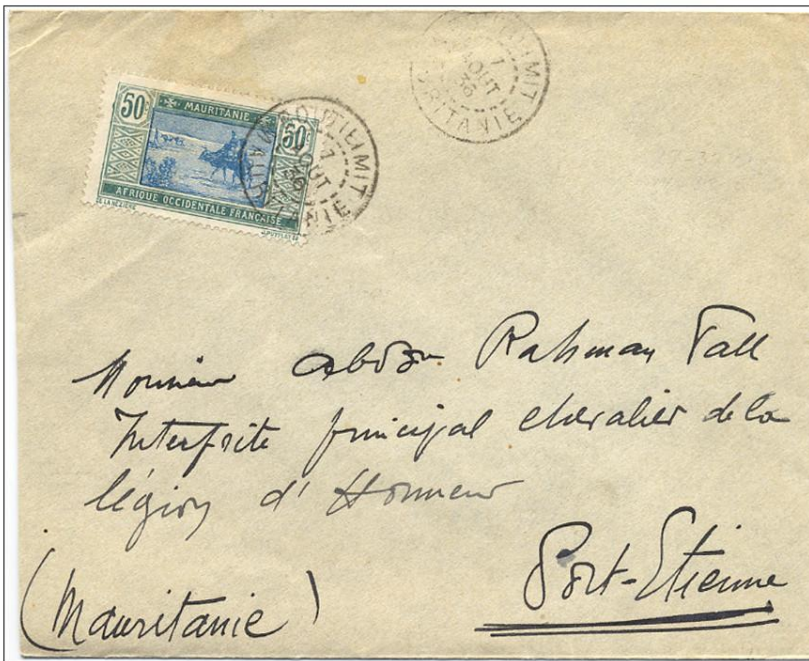 50c MAURITANIE 50c
AFRIQUE OCCIDENTALE FRANÇAISE
BOUTILIMIT
7
AOUT
36
MAURITANIE
OUTILIMIT
7
AOUT
36
URITANIE
Monsieur Abdou Rahman Fall
Interprète principal chevalier de la
légion d'Honneur
Port-Etienne
(Mauritanie)